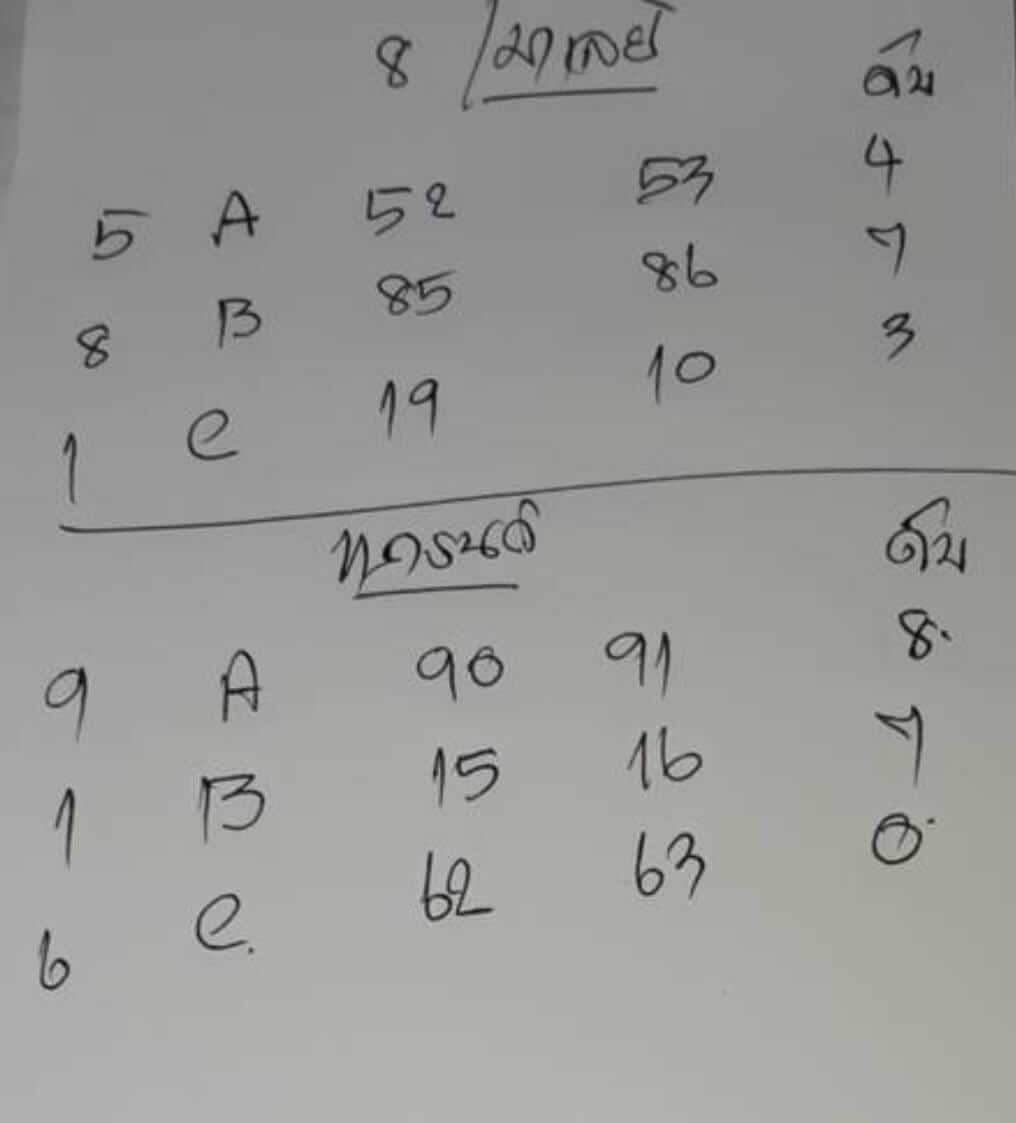 8 /มาเลย์ ดับ
5 A 52 53 4
8 B 85 86 7
1 C 19 10 3
ดับ
9 A 90 91 8.
1 B 15 16 7
6 C. 62 63 0.